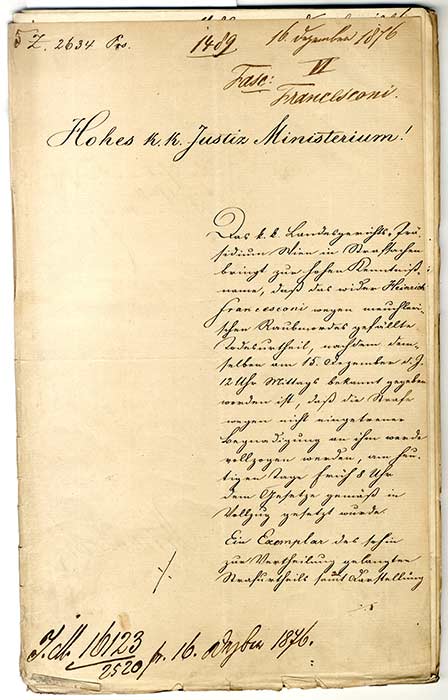 5 Z. 2634 Prs. 1489 16 Dezember 1876
Fasc: VI
Francesconi.
Hohes k. k. Justiz Ministerium!
Das k. k. Landesgerichts-Prä-
sidium Wien in Strafsachen
bringt zur hohen Kenntniß-
name, daß das wider Heinrich
Francesconi wegen meuchleri-
schen Raubmordes gefällte
Todesurtheil, nachdem dem-
selben am 15. Dezember d. J.
12 Uhr Mittags bekannt gegeben
worden ist, daß die Strafe
wegen nicht eingetretener
Begnadigung an ihm werde
vollzogen werden, am heu-
tigen Tage früh 8 Uhr
dem Gesetze gemäß in
Vollzug gesetzt wurde.
Ein Exemplar des sohin
zur Vertheilung gelangten
Strafurtheils samt Darstellung
J. M. 16123 pr. 16. Dezber 1876.
2520